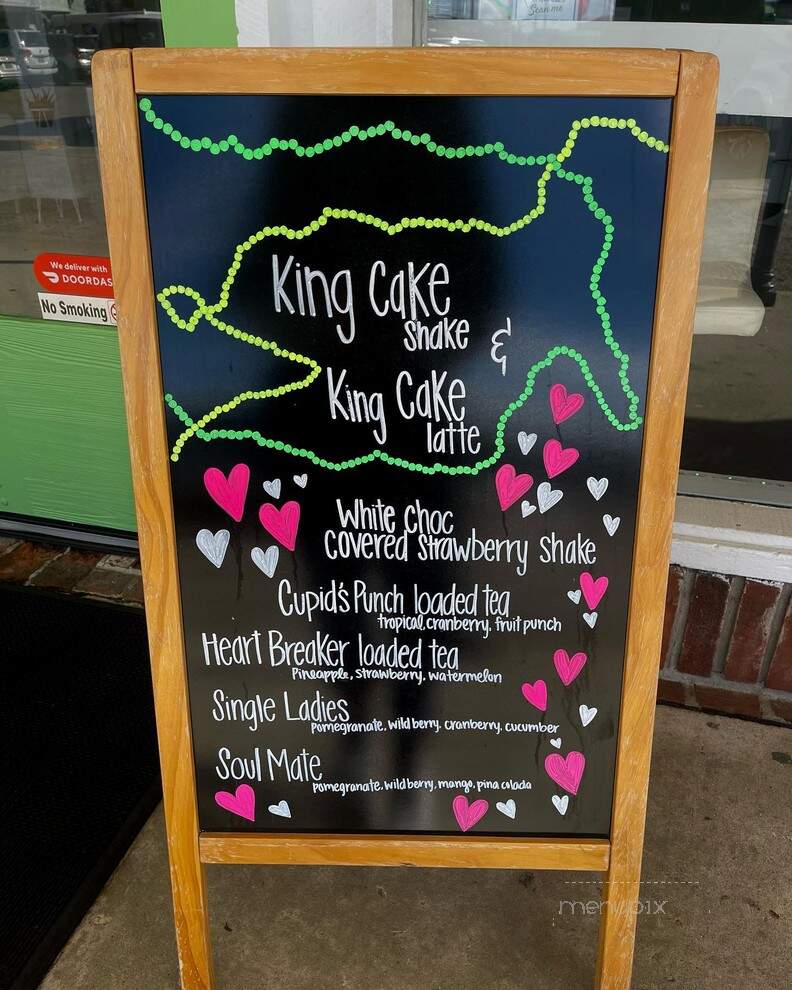 Scan me
We deliver with
DOORDAS
No Smoking
King Cake
shake
&
King Cake
latte
White choc
covered strawberry shake
Cupid's Punch loaded tea
tropical, cranberry, fruit punch
Heart Breaker loaded tea
Pineapple, strawberry, watermelon
Single Ladies
pomegranate, wild berry, cranberry, cucumber
Soul Mate
pomegranate, wild berry, mango, pina colada
menupix